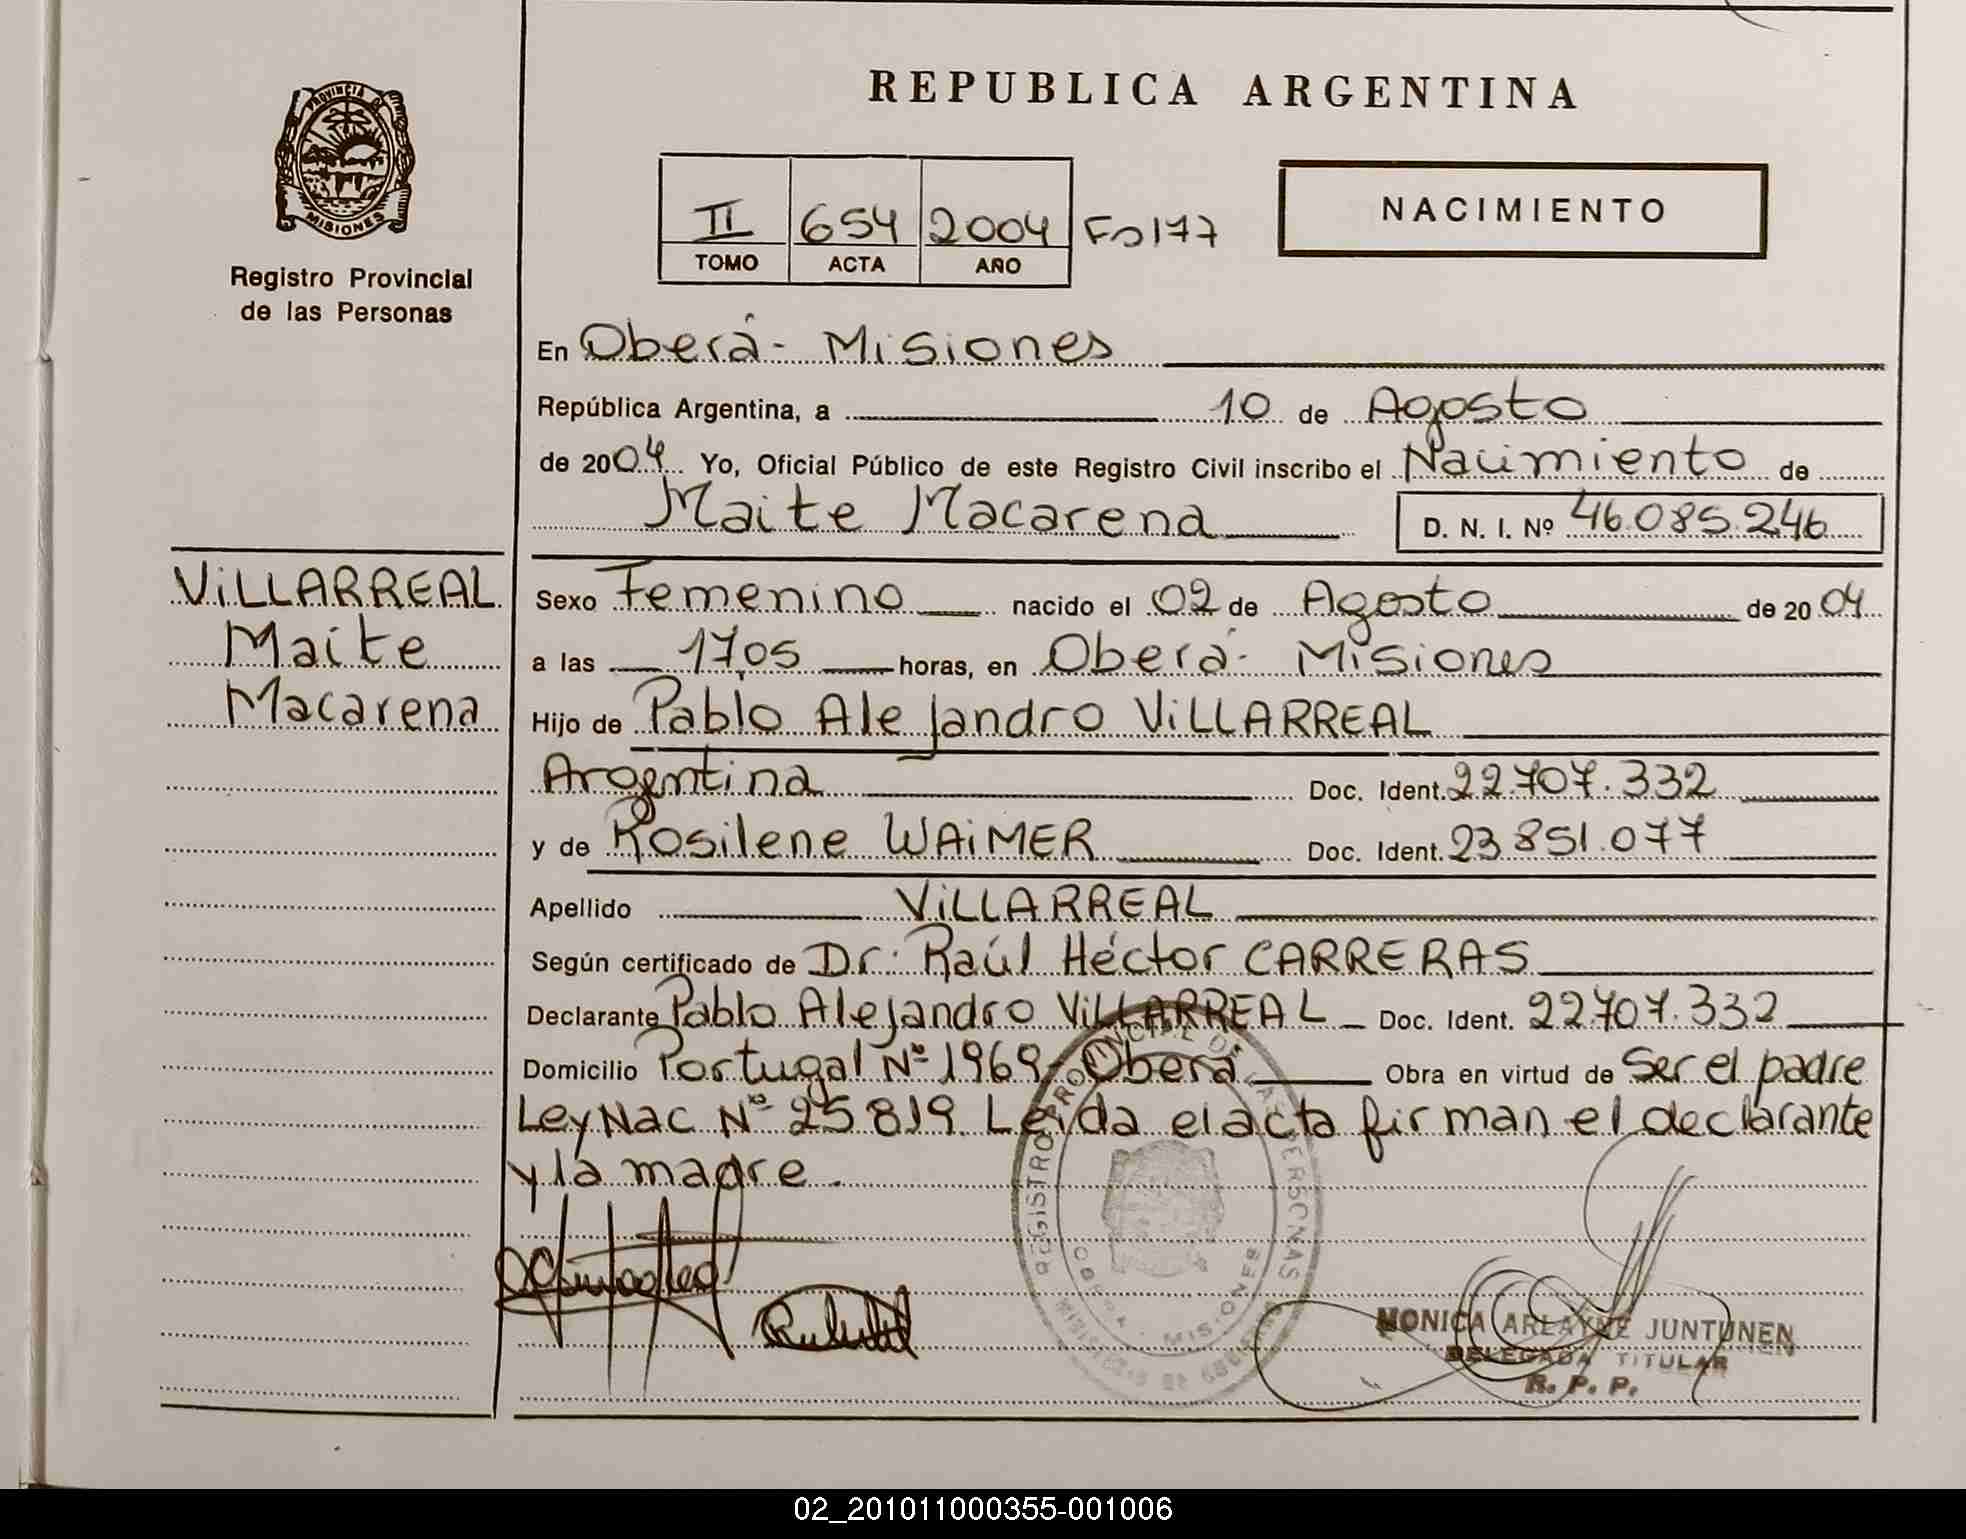 REPUBLICA ARGENTINA
PROVINCIA DE
MISIONES
Registro Provincial
de las Personas
II 654 2004 Fo 177
TOMO ACTA AÑO
NACIMIENTO
En Oberá - Misiones
República Argentina, a 10 de Agosto
de 2004 Yo, Oficial Público de este Registro Civil inscribo el Nacimiento de
Maite Macarena D. N. I. Nº 46.085.246
VILLARREAL
Maite
Macarena
Sexo Femenino nacido el 02 de Agosto de 2004
a las 17,05 horas, en Oberá - Misiones
Hijo de Pablo Alejandro VILLARREAL
Argentina Doc. Ident. 22.707.332
y de Rosilene WAIMER Doc. Ident. 23.851.077
Apellido VILLARREAL
Según certificado de Dr. Raúl Héctor CARRERAS
Declarante Pablo Alejandro VILLARREAL Doc. Ident. 22.707.332
Domicilio Portugal Nº 1969 - Oberá Obra en virtud de Ser el padre
Ley Nac Nº 25.819. Leída el acta firman el declarante
y la madre.
REGISTRO PROVINCIAL DE LAS PERSONAS
OBERA - MISIONES
MONICA ARLAYNE JUNTUNEN
DELEGADA TITULAR
R. P. P.
02_201011000355-001006